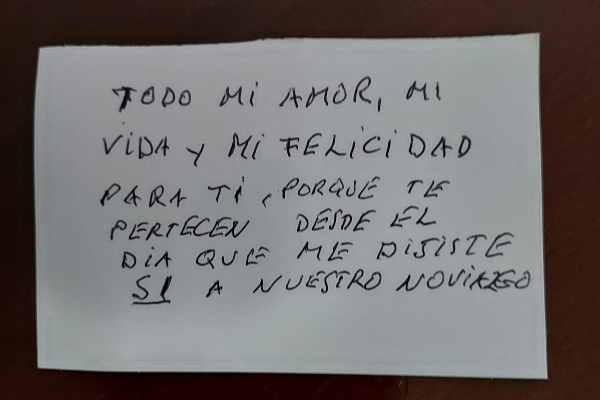 TODO Mi AMOR, MI
ViDA y Mi FELICIDAD
PARA Ti, PORQUE TE
PERTECEN DESDE EL
DiA QUE ME DISISTE
SI A NUESTRO NOVIAZGO